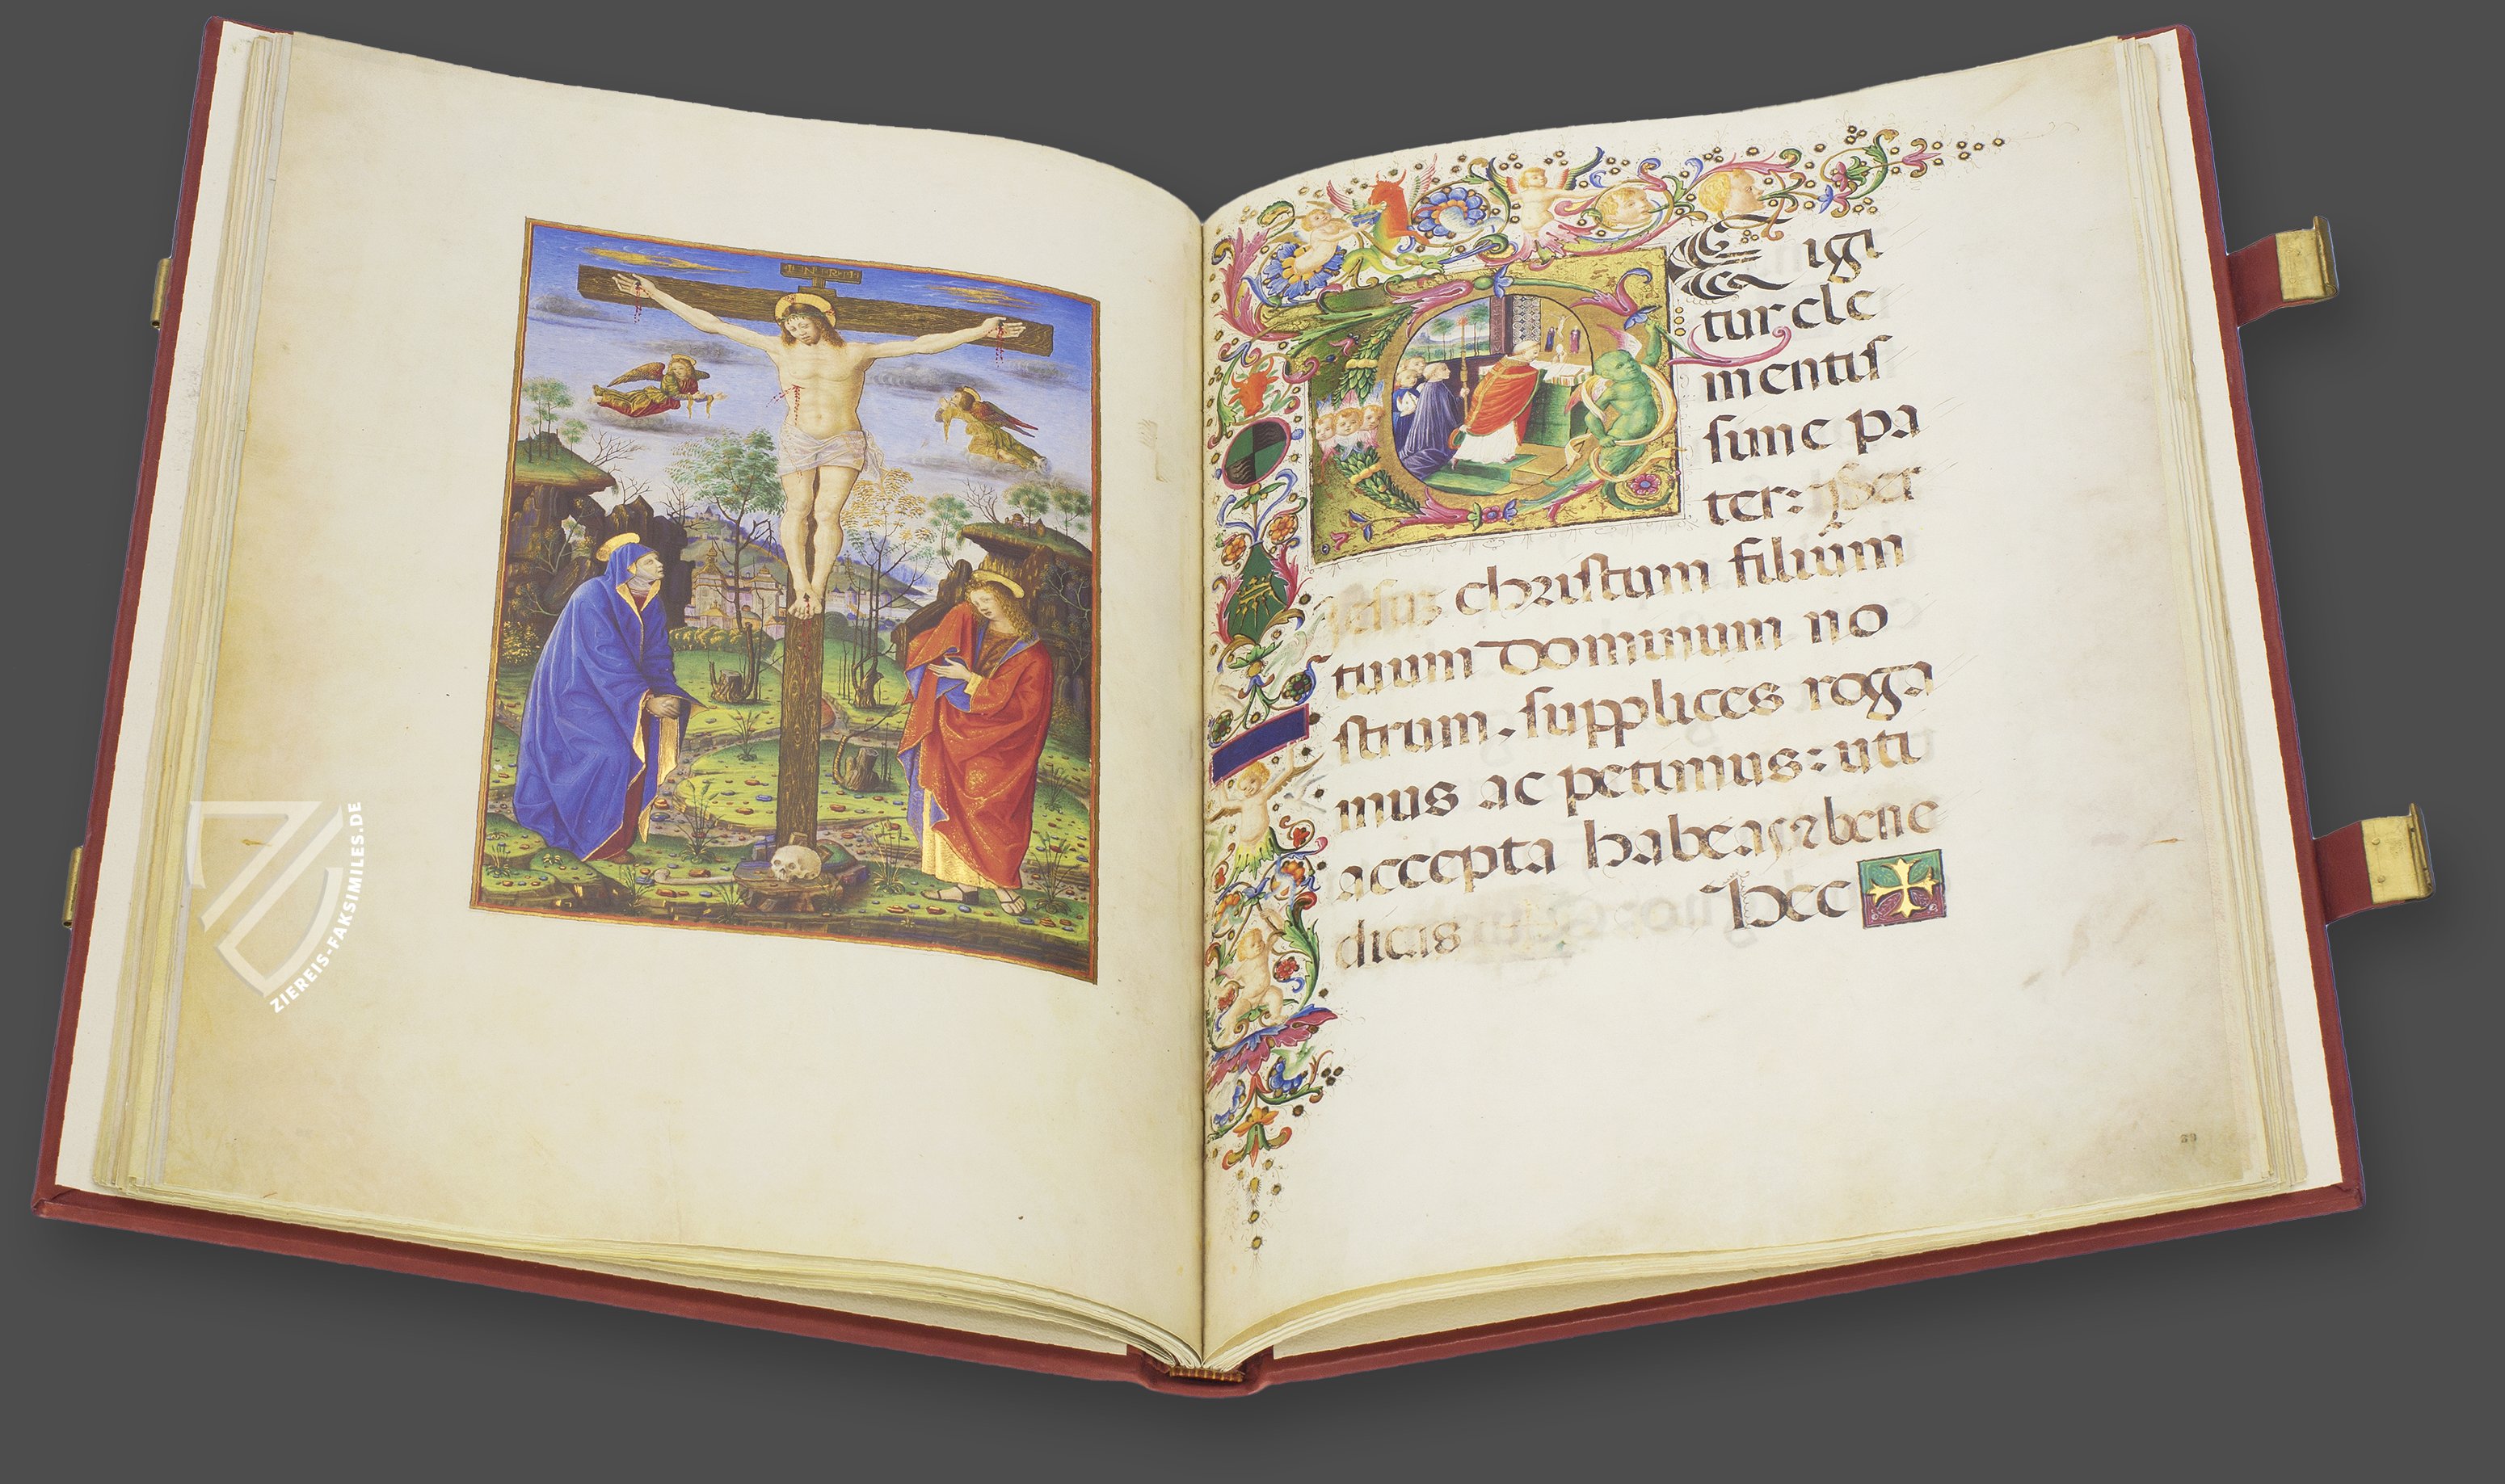 INRI
TE igi
tur cle
mentis
sime pa
ter: per
iesus christum filium
tuum Dominum no
strum. supplices roga
mus ac petimus: uti
accepta habeas et bene
dicas hec
ZIEREIS-FAKSIMILES.DE